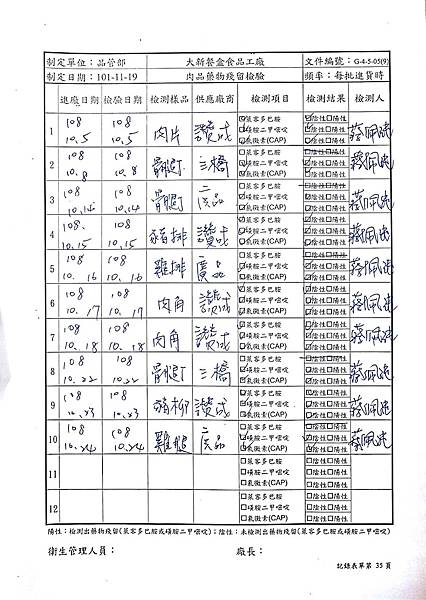 制定單位：品管部 大新餐盒食品工廠 文件編號：G-4-5-05(9)
制定日期：101-11-19 肉品藥物殘留檢驗 頻率：每批進貨時
進廠日期 檢驗日期 檢測樣品 供應廠商 檢測項目 檢測結果 檢測人
1 108 10.5 108 10.5 肉片 讚成 ☑萊客多巴胺 ☑陰性☐陽性 蔡佩
☑磺胺二甲嘧啶 ☑陰性☐陽性
☐氯黴素(CAP) ☐陰性☐陽性
2 108 10.8 108 10.8 骨腿丁 三橋 ☐萊客多巴胺 ☐陰性☐陽性 蔡佩
☑磺胺二甲嘧啶 ☑陰性☐陽性
☐氯黴素(CAP) ☐陰性☐陽性
3 108 10.14 108 10.14 骨腿丁 廣品 ☐萊客多巴胺 ☐陰性☐陽性 蔡佩
☑磺胺二甲嘧啶 ☑陰性☐陽性
☐氯黴素(CAP) ☐陰性☐陽性
4 108. 10.15 108. 10.15 豬排 讚成 ☑萊客多巴胺 ☑陰性☐陽性 蔡佩
☑磺胺二甲嘧啶 ☑陰性☐陽性
☐氯黴素(CAP) ☐陰性☐陽性
5 108 10.16 108 10.16 雞排 廣品 ☐萊客多巴胺 ☐陰性☐陽性 蔡佩
☑磺胺二甲嘧啶 ☑陰性☐陽性
☐氯黴素(CAP) ☐陰性☐陽性
6 108 10.17 108 10.17 肉角 讚成 ☑萊客多巴胺 ☑陰性☐陽性 蔡佩
☑磺胺二甲嘧啶 ☑陰性☐陽性
☐氯黴素(CAP) ☐陰性☐陽性
7 108 10.18 108 10.18 肉角 讚成 ☑萊客多巴胺 ☑陰性☐陽性 蔡佩
☑磺胺二甲嘧啶 ☑陰性☐陽性
☐氯黴素(CAP) ☐陰性☐陽性
8 108 10.22 108 10.22 骨腿丁 三橋 ☐萊客多巴胺 ☐陰性☐陽性 蔡佩
☑磺胺二甲嘧啶 ☑陰性☐陽性
☐氯黴素(CAP) ☐陰性☐陽性
9 108 10.23 108 10.23 豬柳 讚成 ☑萊客多巴胺 ☑陰性☐陽性 蔡佩
☑磺胺二甲嘧啶 ☑陰性☐陽性
☐氯黴素(CAP) ☐陰性☐陽性
10 108 10.24 108 10.24 雞腿 廣品 ☐萊客多巴胺 ☐陰性☐陽性 蔡佩
☑磺胺二甲嘧啶 ☑陰性☐陽性
☐氯黴素(CAP) ☐陰性☐陽性
11 ☐萊客多巴胺 ☐陰性☐陽性
☐磺胺二甲嘧啶 ☐陰性☐陽性
☐氯黴素(CAP) ☐陰性☐陽性
12 ☐萊客多巴胺 ☐陰性☐陽性
☐磺胺二甲嘧啶 ☐陰性☐陽性
☐氯黴素(CAP) ☐陰性☐陽性
陽性：檢測出藥物殘留(萊客多巴胺或磺胺二甲嘧啶)；陰性：未檢測出藥物殘留(萊客多巴胺或磺胺二甲嘧啶)
衛生管理人員： 廠長：
記錄表單第 35 頁